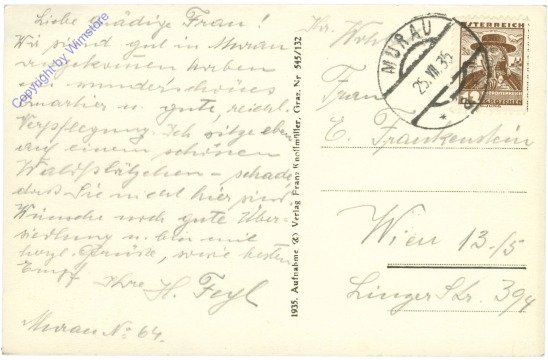 Liebe gnädige Frau!
Wir sind gut in Murau
angekommen haben
ein wunderschönes
Quartier u. gute, reichl.
Verpflegung. Ich sitze eben
auf einem schönen
Waldplätzchen - schade
dass Sie nicht hier sind.
Wünsche noch gute Über-
siedlung u. bin mit
herzl. Grüsse, sowie besten
Empf.
Ihre H. Feyl
Murau No 64.
Copyright by Wimstore
1935. Aufnahme u. Verlag Franz Knollmüller, Graz. Nr. 545/132
MURAU
25. VII. 35
ÖSTERREICH
GROSCHEN
Frau
E. Frankenstein
Wien 13./5
Linzer Str. 394